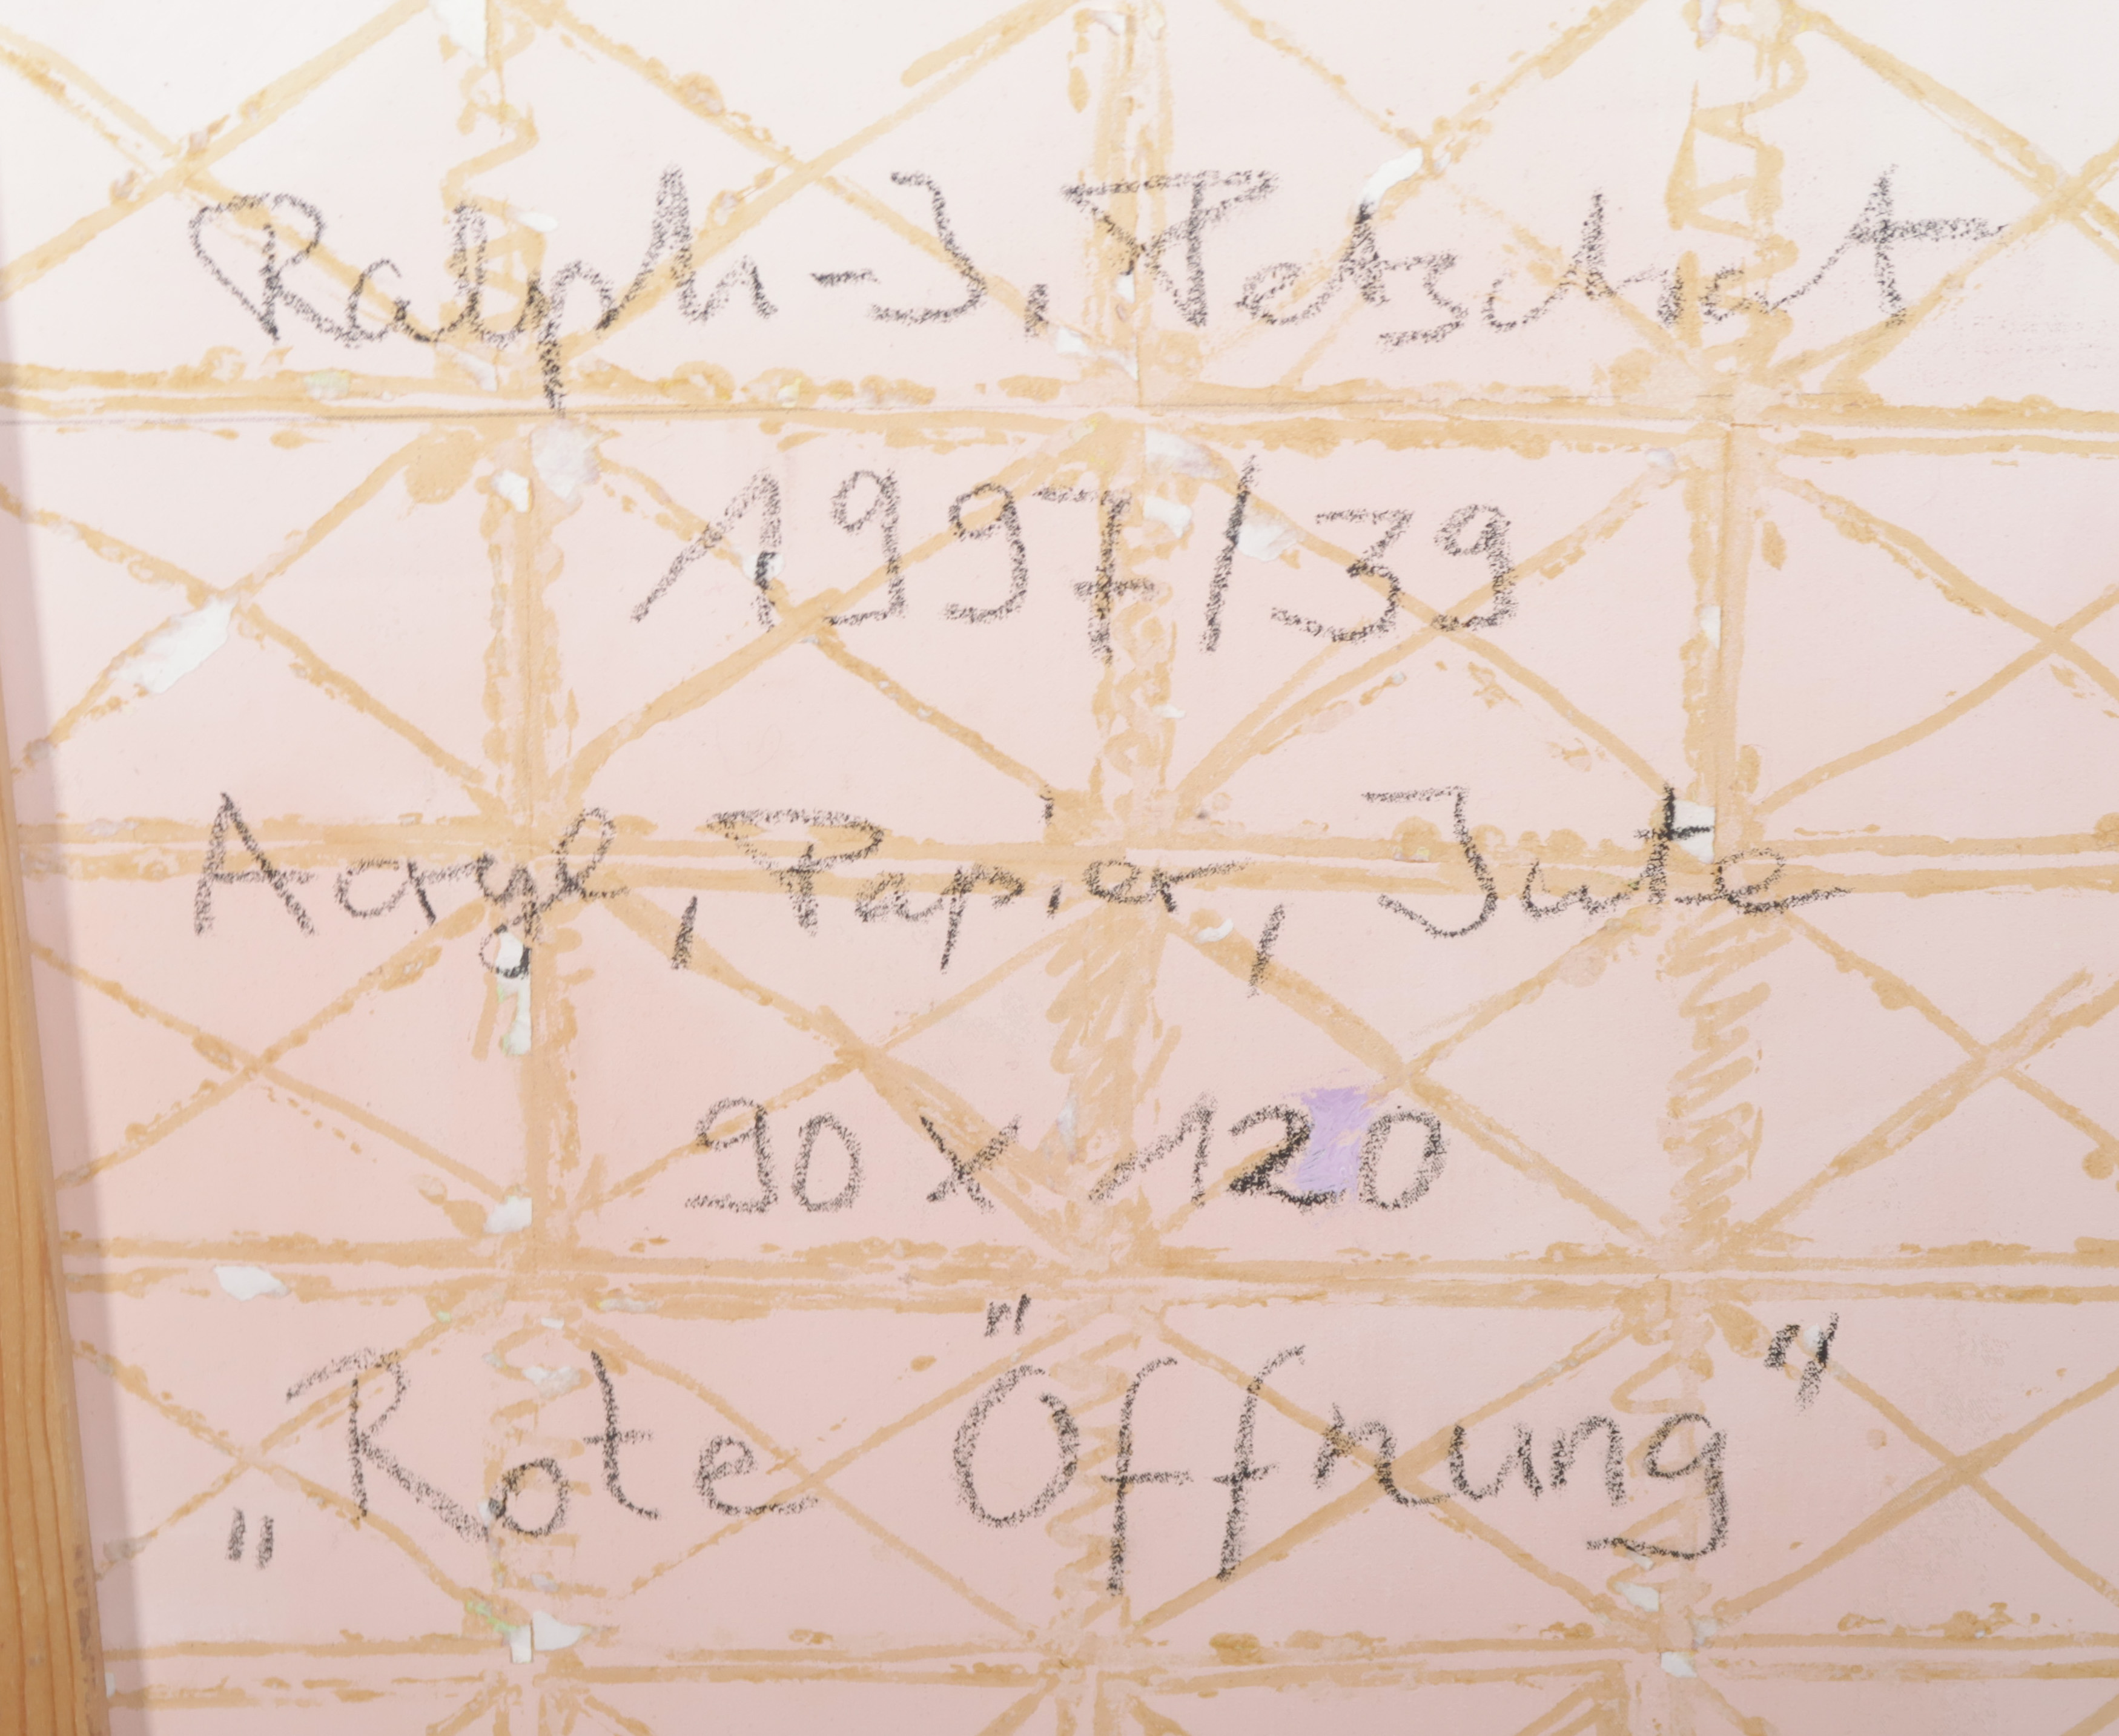 Ralph-J. Petschat
1997/39
Acryl, Papier, Jute
90 x 120
„Rote Öffnung“